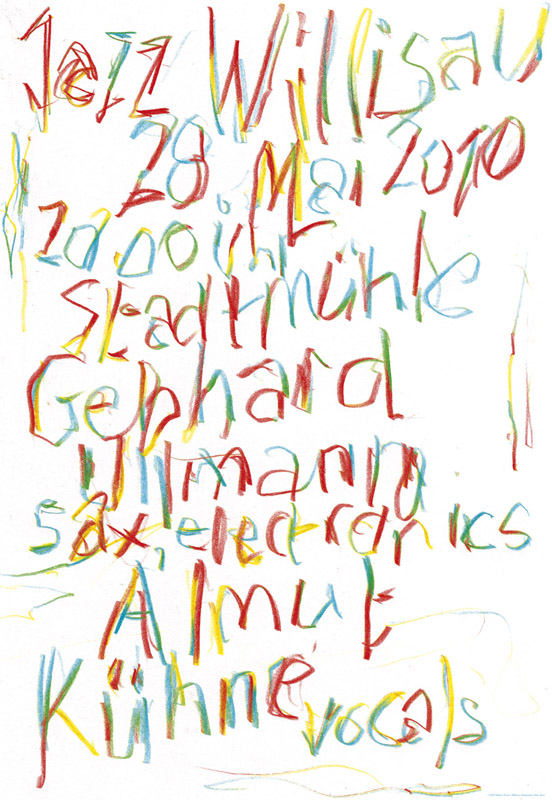 Jazz Willisau
28. Mai 2010
20.00 uhr
Stadtmühle
Gebhard
Ullmann
sax, electronics
Almut
Kühne vocals